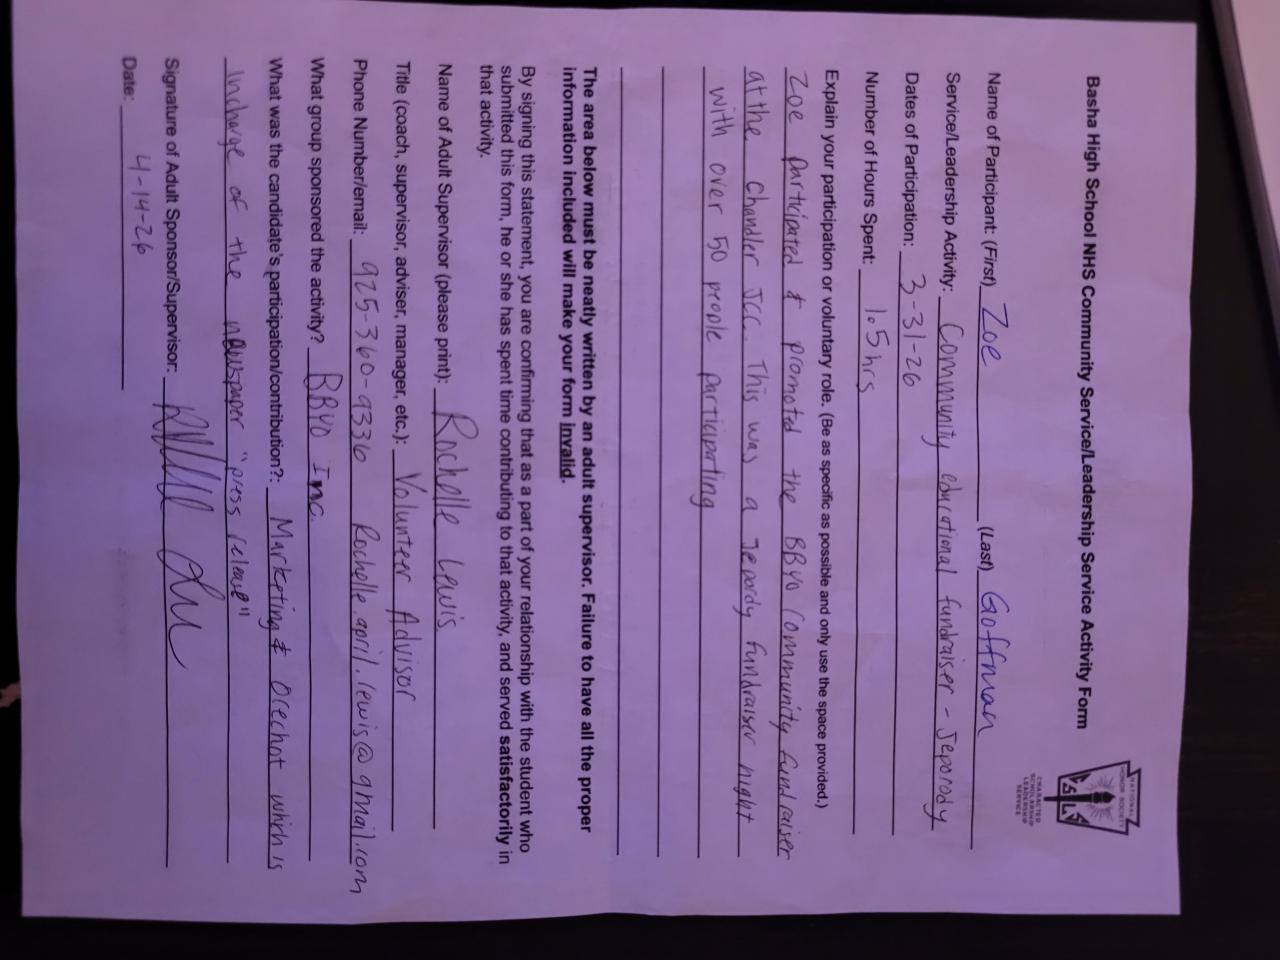 Basha High School NHS Community Service/Leadership Service Activity Form
NATIONAL
HONOR SOCIETY
CSLS
CHARACTER
SCHOLARSHIP
LEADERSHIP
SERVICE
Name of Participant: (First) Zoe (Last) Goffman
Service/Leadership Activity: Community educational fundraiser - Jeporody
Dates of Participation: 3-31-26
Number of Hours Spent: 1.5 hrs
Explain your participation or voluntary role. (Be as specific as possible and only use the space provided.)
Zoe participated & promoted the BBYO Community fundraiser
at the Chandler JCC. This was a Jepordy fundraiser night
with over 50 people participating
The area below must be neatly written by an adult supervisor. Failure to have all the proper
information included will make your form invalid.
By signing this statement, you are confirming that as a part of your relationship with the student who
submitted this form, he or she has spent time contributing to that activity, and served satisfactorily in
that activity.
Name of Adult Supervisor (please print): Rochelle Lewis
Title (coach, supervisor, adviser, manager, etc.): Volunteer Advisor
Phone Number/email: 925-360-9336 Rochelle.april.lewis@gmail.com
What group sponsored the activity? BBYO Inc.
What was the candidate's participation/contribution?: Marketing & Orechot which is
incharge of the newspaper "press release"
Signature of Adult Sponsor/Supervisor:
Date: 4-14-26